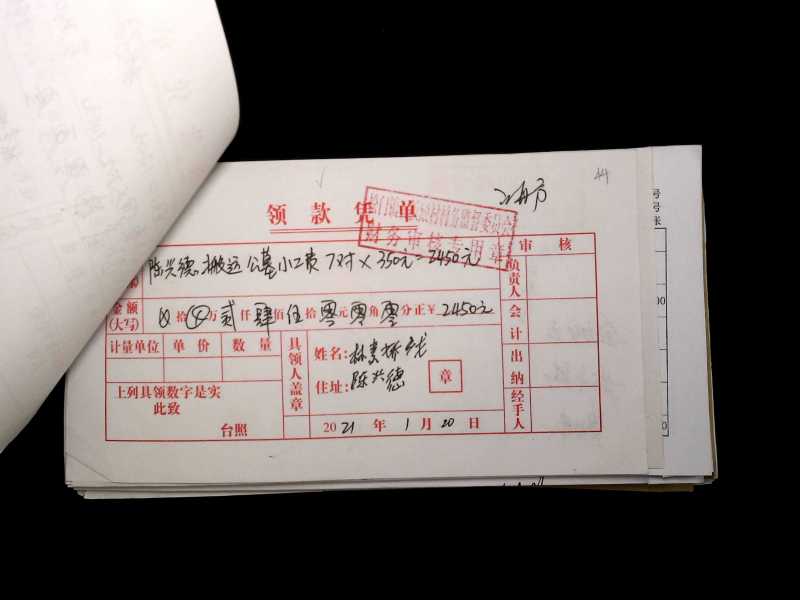 44
领款凭单
财务审核专用章
陈兴德搬运公墓小工费 7对×350元=2450元
审核
负责人
金额(大写) 拾 万 贰仟肆佰伍拾零元零角零分正¥2450元
会计
计量单位 单价 数量
具领人盖章
姓名:
出纳
上列具领数字是实
住址:陈兴德 章
此致
经手人
台照
2021年1月20日
号
号
张
00
0